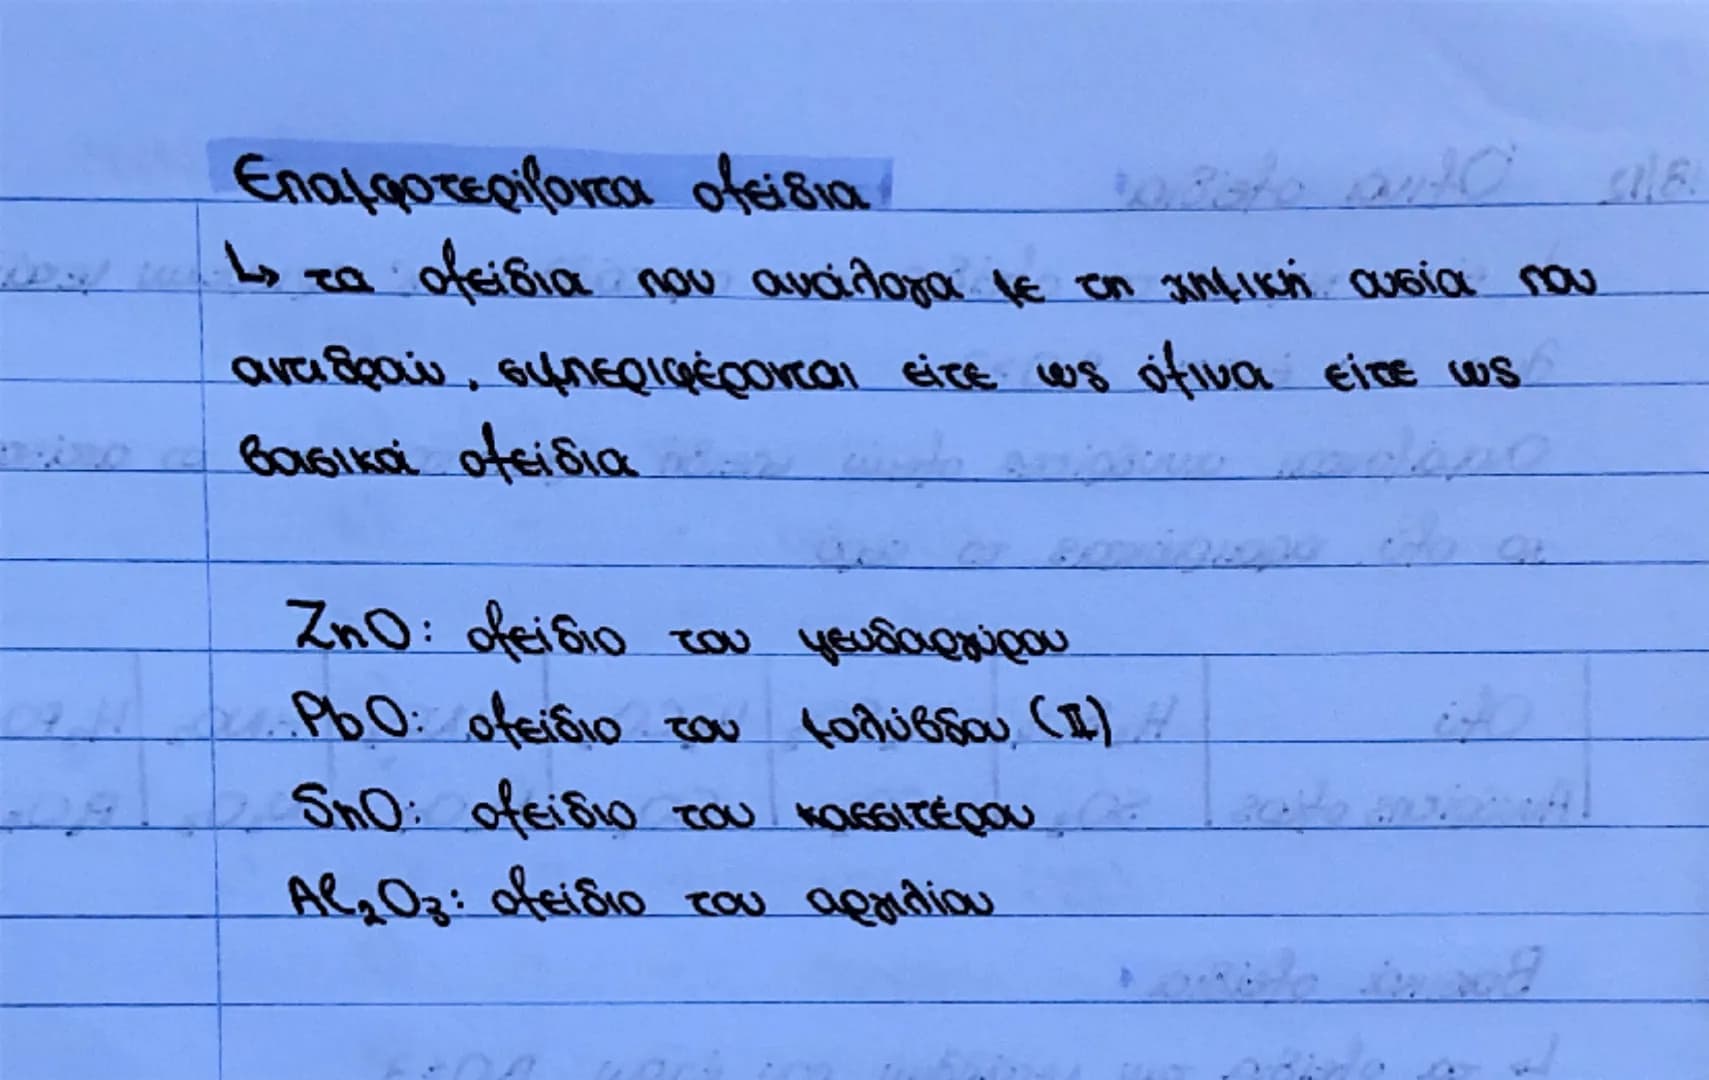 Επαμφοτερίζοντα οξείδια
↳ τα οξείδια που ανάλογα με τη χημική ουσία που
αντιδρούν, συμπεριφέρονται είτε ως όξινα είτε ως
βασικά οξείδια
ZnO: οξείδιο του ψευδαργύρου
PbO: οξείδιο του μολύβδου (II)
SnO: οξείδιο του κασσιτέρου
Al₂O₃: οξείδιο του αργιλίου